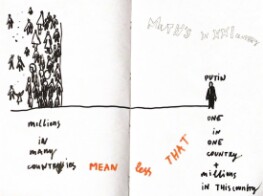 PUTIN
millions
in
many
countries
MEAN less THAT
ONE
in
ONE
COUNTRY
+
millions
IN THIS country